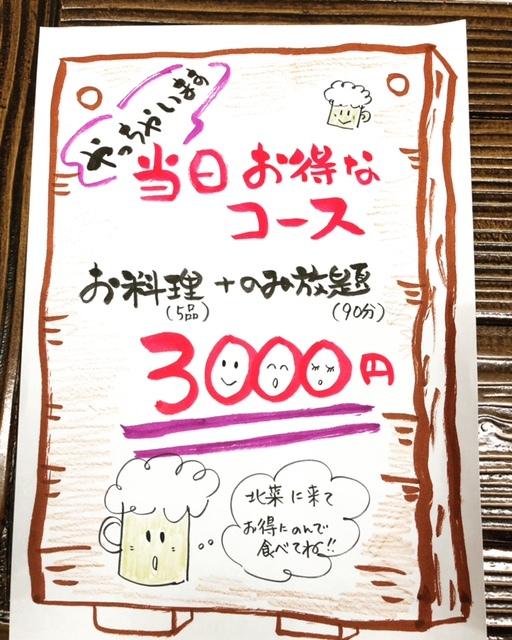 やっちゃいます
当日お得な
コース
お料理+のみ放題
(5品) (90分)
3000円
北菜に来て
お得にのんで
食べてね!!